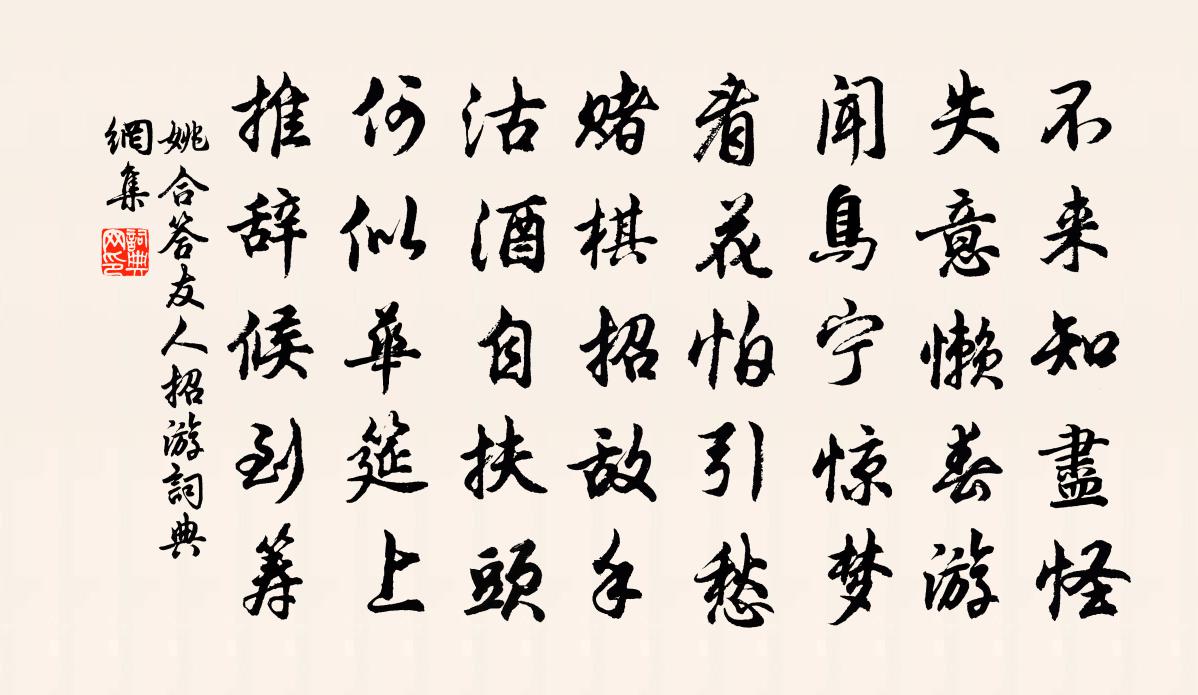 不来知盡怪
失意懒春游
闻鳥宁惊梦
看花怕引愁
赌棋招敌手
沽酒自扶頭
何似華筵上
推辞候到筹
姚合答友人招游詞典
網集
詞典
网印